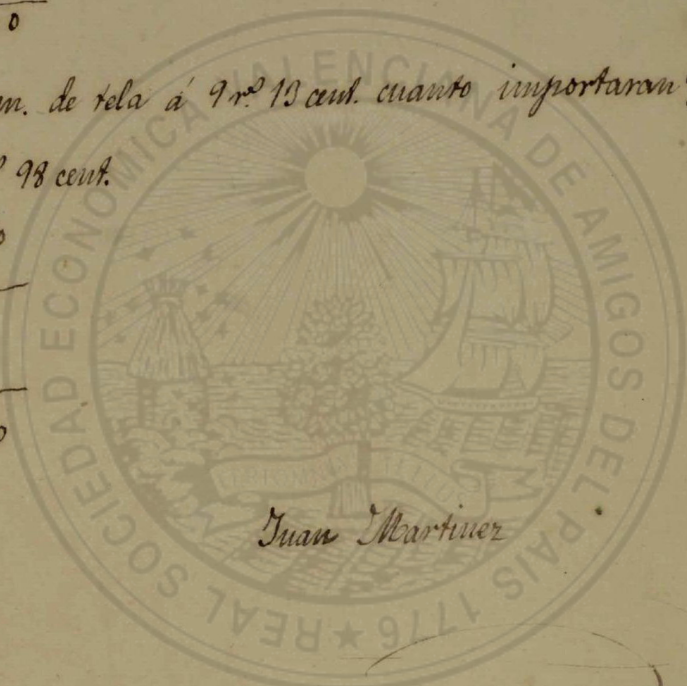 0
de tela á 9 rs 13 cent. cuanto importaran
98 cent.
Juan Martinez
REAL SOCIEDAD ECONOMICA VALENCIANA DE AMIGOS DEL PAIS 1776